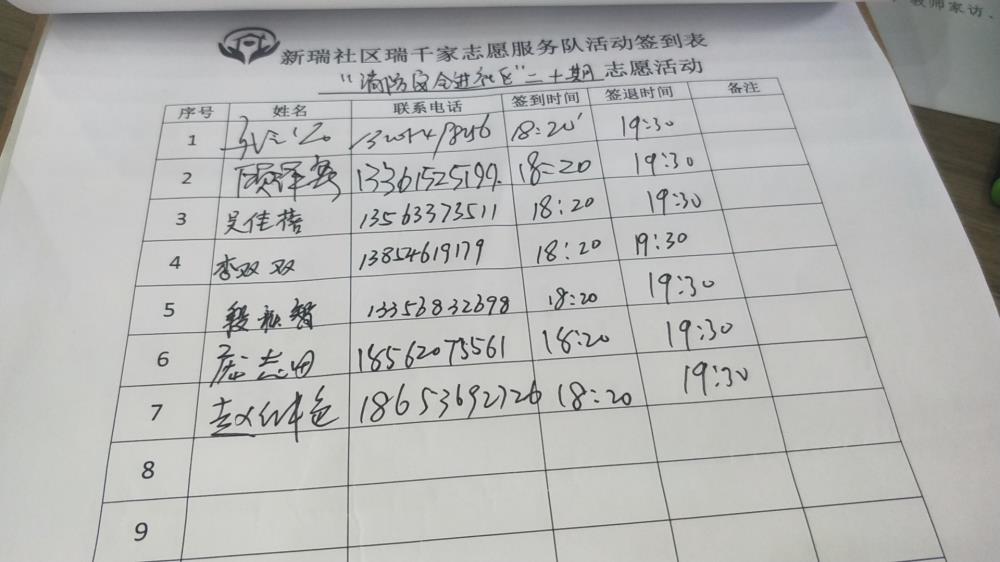 教师家访、
新瑞社区瑞千家志愿服务队活动签到表
“消防安全进社区”二十期 志愿活动
序号 姓名 联系电话 签到时间 签退时间 备注
1 18:20' 19:30
2 13361525199. 18:20 19:30
3 吴佳蓓 13563373511 18:20 19:30
4 李双双 13854619179 18:20 19:30
5 段振智 13356832698 18:20 19:30
6 18562075561 18:20 19:30
7 18653692726 18:20 19:30
8
9